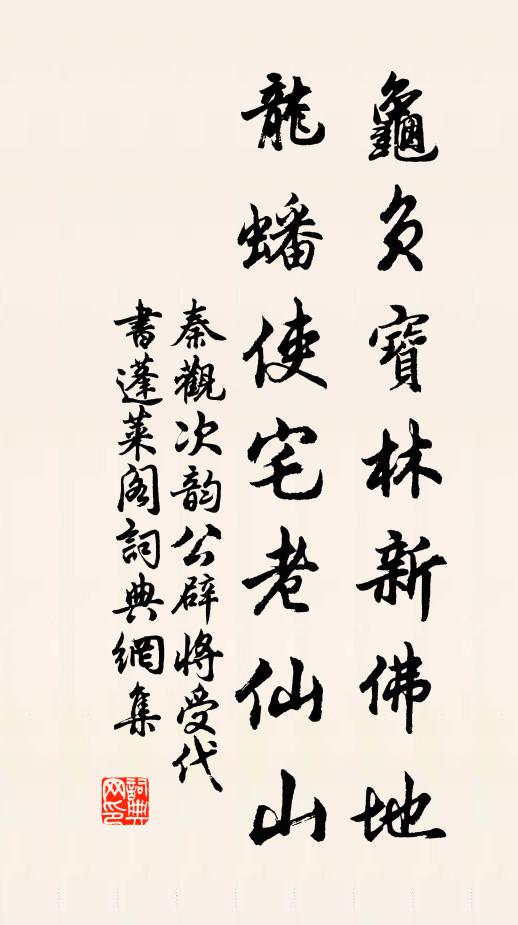 龜負寶林新佛地
龍蟠使宅老仙山
秦觀次韵公辟將受代
書蓬萊閣詞典網集
詞典網印